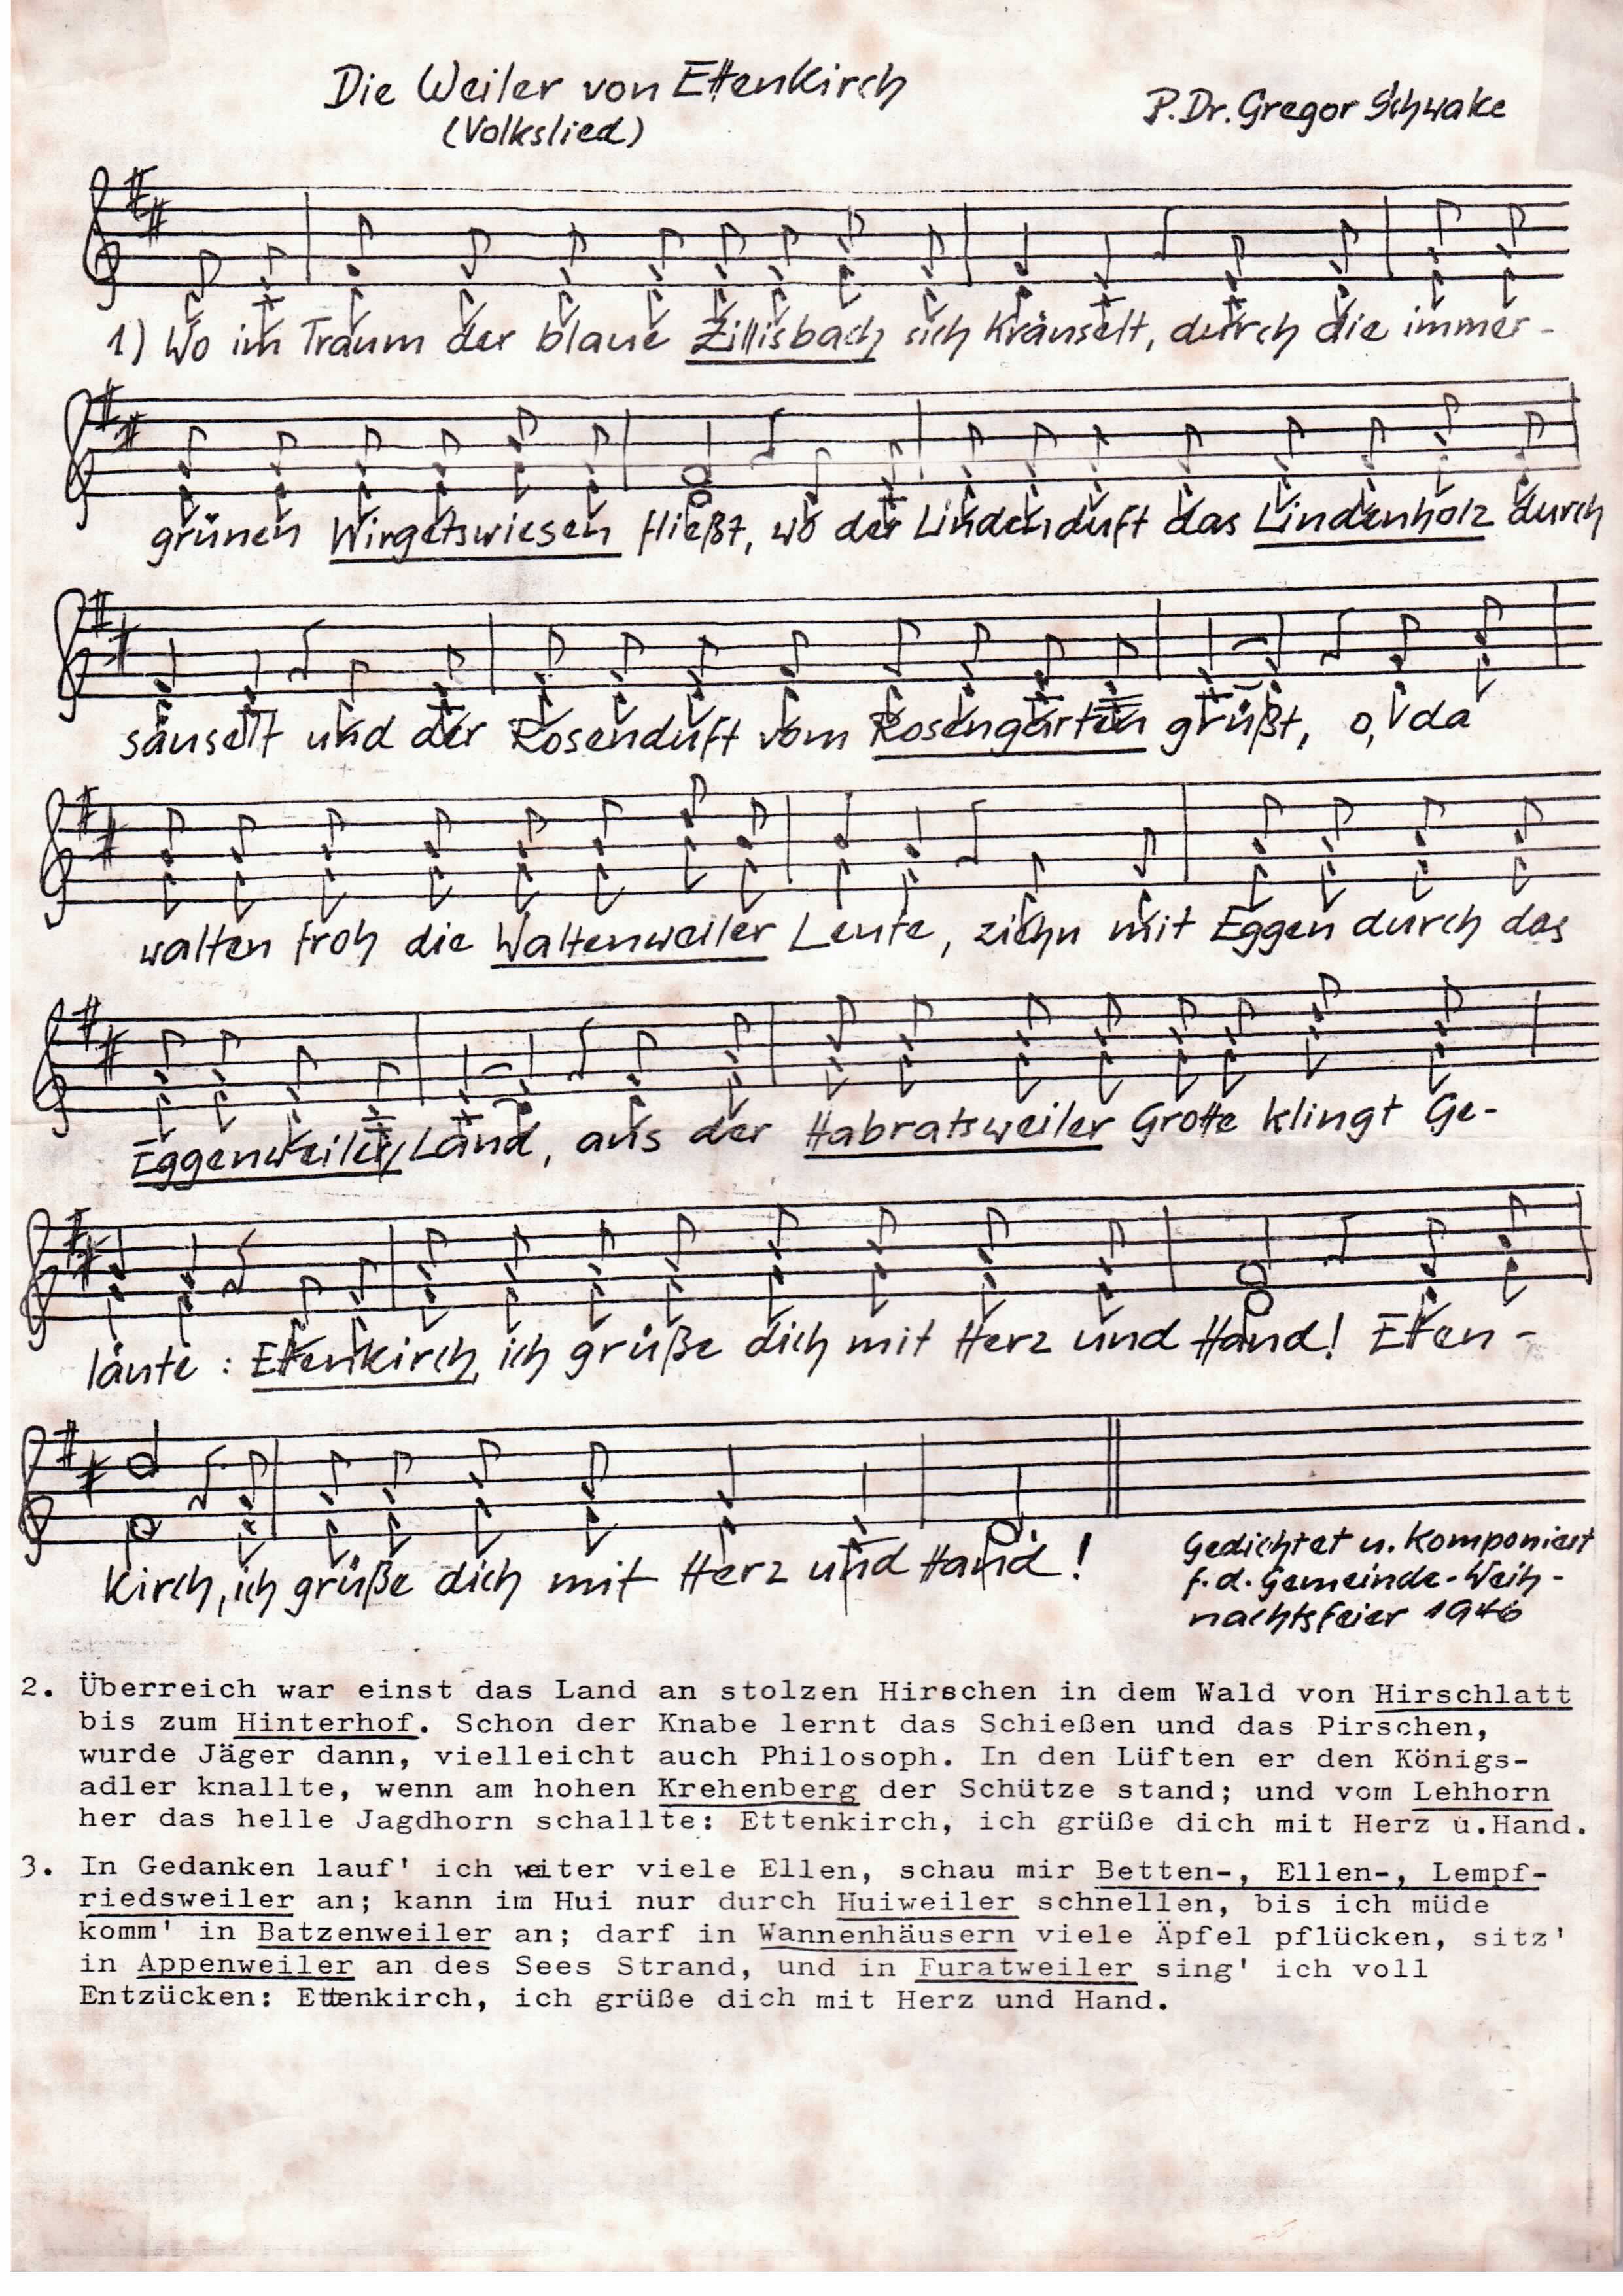 Die Weiler von Ettenkirch
(Volkslied)
P. Dr. Gregor Schwake
1) Wo im Traum der blaue Zillisbach sich kräuselt, durch die immer-
grünen Wirgetswiesen fließt, wo der Lindenduft das Lindenholz durch
säuselt und der Rosenduft vom Rosengarten grüßt, o, da
walten froh die Waltenweiler Leute, ziehn mit Eggen durch das
Eggenweiler Land, aus der Habratsweiler Grotte klingt Ge-
läute: Ettenkirch, ich grüße dich mit Herz und Hand! Etten-
kirch, ich grüße dich mit Herz und Hand!
Gedichtet u. komponiert
f. d. Gemeinde-Weih-
nachtsfeier 1946
2. Überreich war einst das Land an stolzen Hirschen in dem Wald von Hirschlatt
bis zum Hinterhof. Schon der Knabe lernt das Schießen und das Pirschen,
wurde Jäger dann, vielleicht auch Philosoph. In den Lüften er den Königs-
adler knallte, wenn am hohen Krehenberg der Schütze stand; und vom Lehhorn
her das helle Jagdhorn schallte: Ettenkirch, ich grüße dich mit Herz u.Hand.
3. In Gedanken lauf' ich weiter viele Ellen, schau mir Betten-, Ellen-, Lempf-
riedsweiler an; kann im Hui nur durch Huiweiler schnellen, bis ich müde
komm' in Batzenweiler an; darf in Wannenhäusern viele Äpfel pflücken, sitz'
in Appenweiler an des Sees Strand, und in Furatweiler sing' ich voll
Entzücken: Ettenkirch, ich grüße dich mit Herz und Hand.